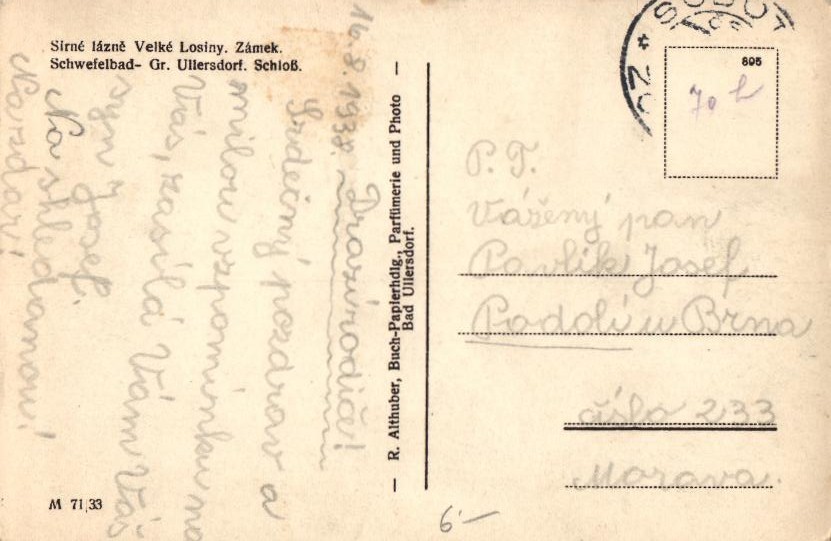 Sirné lázně Velké Losiny. Zámek.
Schwefelbad- Gr. Ullersdorf. Schloß.
16.8.1938.
Drazí rodiče!
Srdečný pozdrav a
milou vzpomínku na
Vás, zasílá Vám Váš
syn Josef.
Na shledanou!
Nazdar!
M 71/33
— R. Althuber, Buch-Papierhdlg., Parfümerie und Photo —
Bad Ullersdorf.
SOBOT
895
70 h
P. T.
Vážený pan
Pavlík Josef
Podolí u Brna
číslo 233
Morava.
6·—